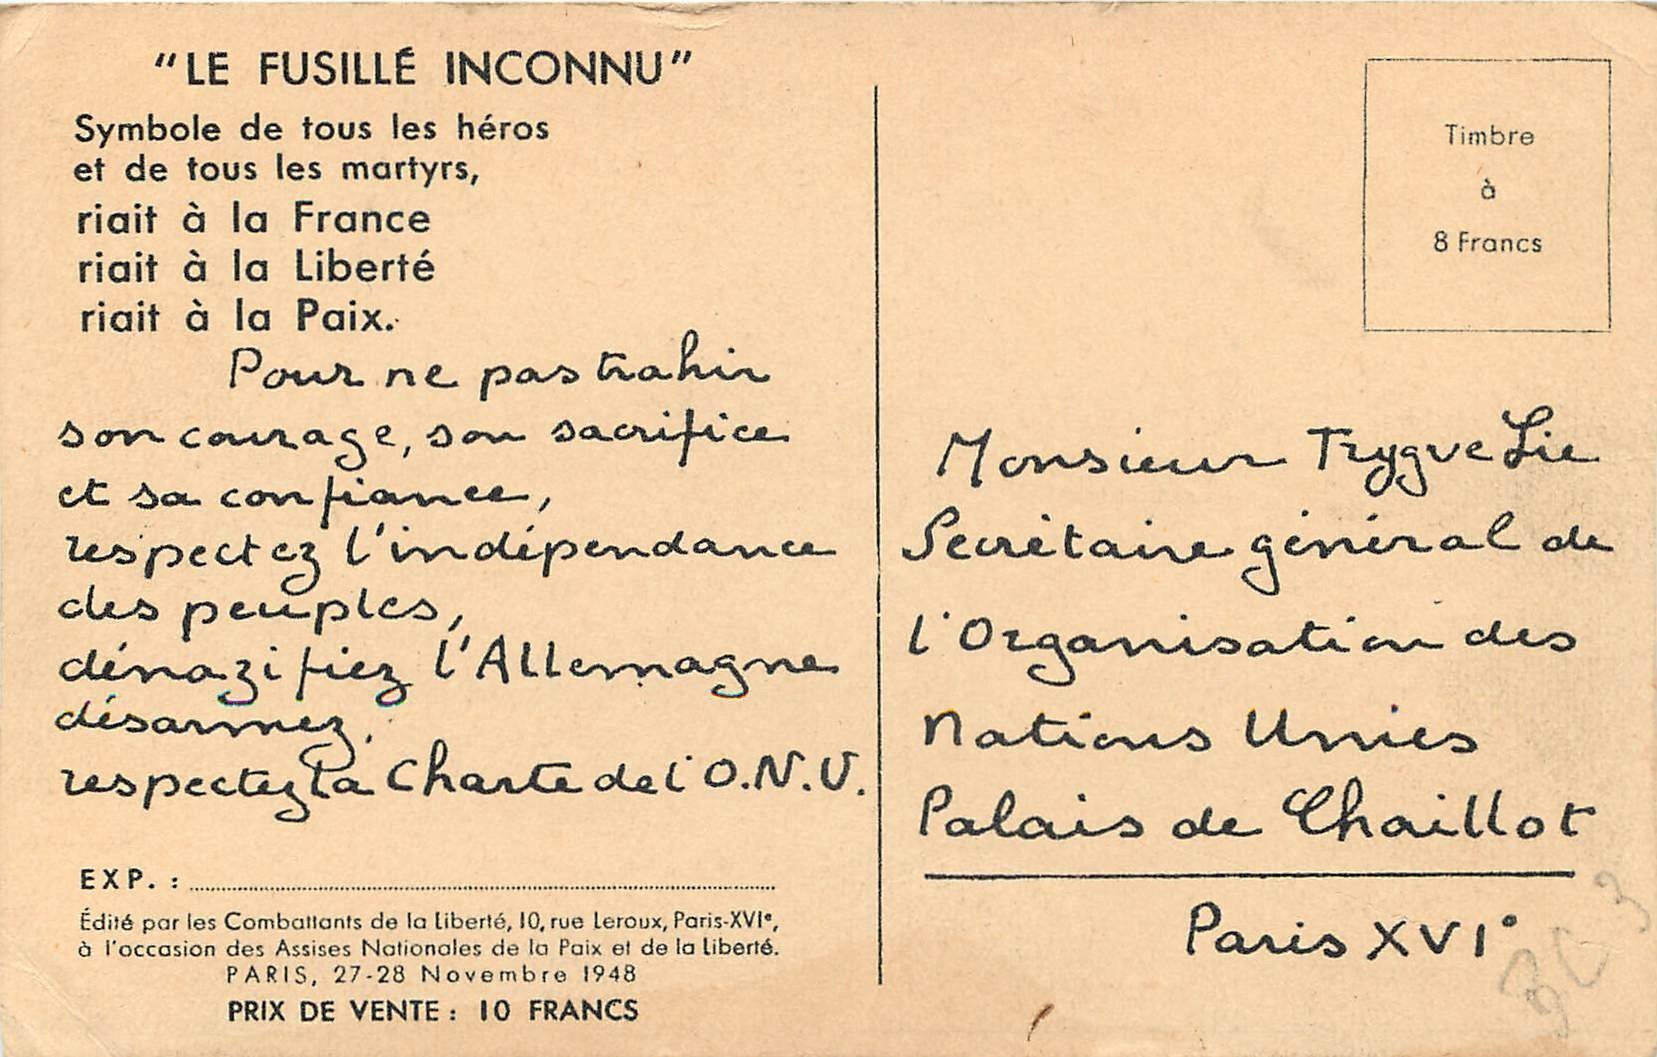 "LE FUSILLÉ INCONNU"
Symbole de tous les héros
et de tous les martyrs,
riait à la France
riait à la Liberté
riait à la Paix.
Pour ne pas trahir
son courage, son sacrifice
et sa confiance,
respectez l'indépendance
des peuples,
dénazifiez l'Allemagne
désarmez,
respectez la Charte de l'O.N.U.
EXP. :
Édité par les Combattants de la Liberté, 10, rue Leroux, Paris-XVIe,
à l'occasion des Assises Nationales de la Paix et de la Liberté.
PARIS, 27-28 Novembre 1948
PRIX DE VENTE : 10 FRANCS
Timbre
à
8 Francs
Monsieur Trygve Lie
Secrétaire général de
l'Organisation des
Nations Unies
Palais de Chaillot
Paris XVI°